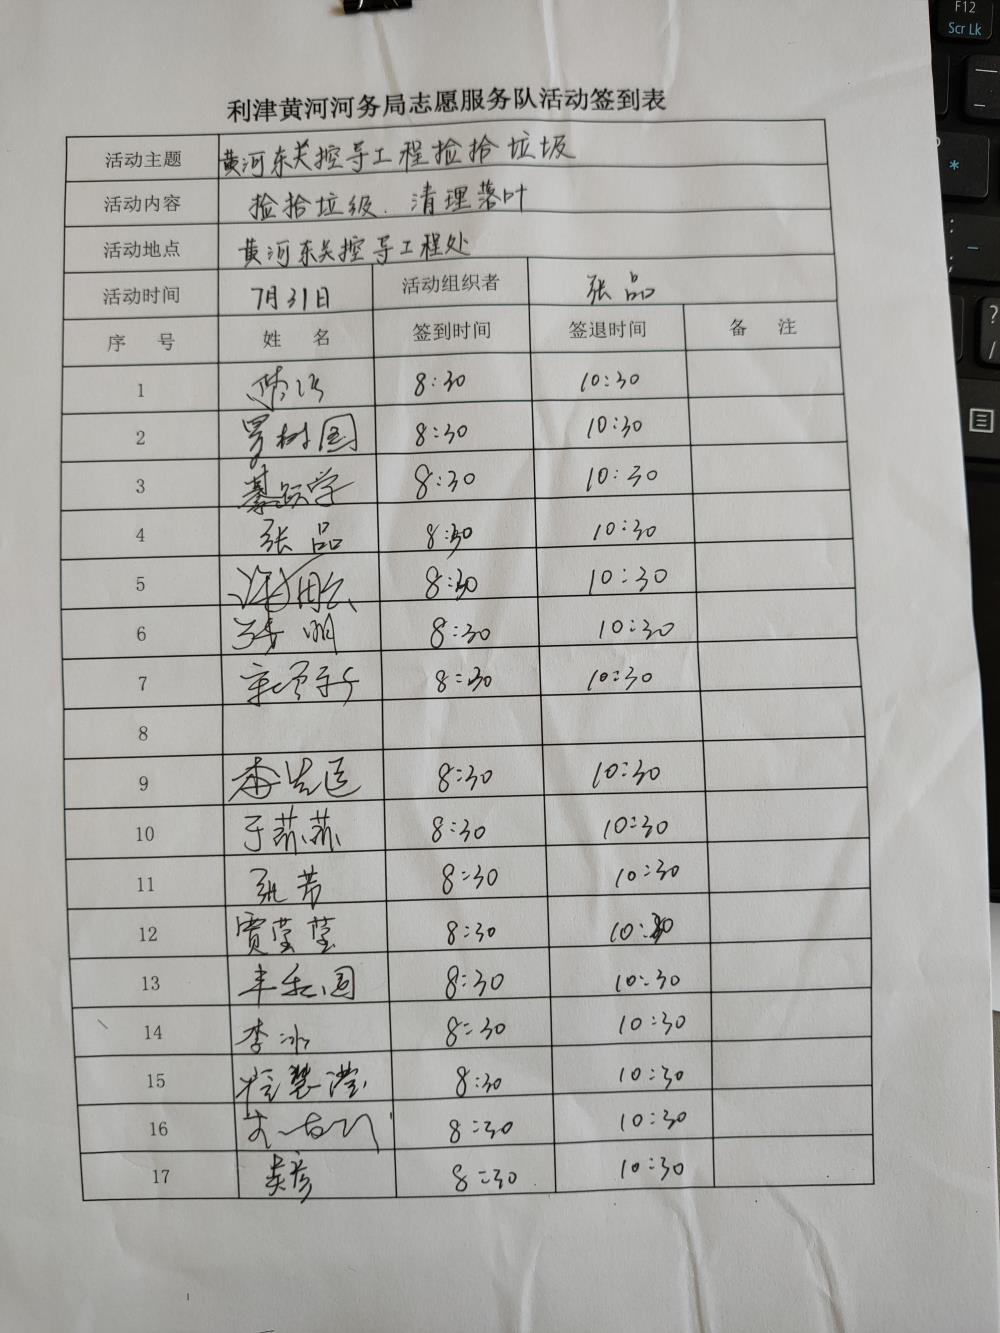 F12
Scr Lk
利津黄河河务局志愿服务队活动签到表
活动主题 黄河东关控导工程捡拾垃圾
活动内容 捡拾垃圾、清理落叶
活动地点 黄河东关控导工程处
活动时间 7月31日 活动组织者 张品
序 号 姓 名 签到时间 签退时间 备 注
1 8:30 10:30
2 罗树国 8:30 10:30
3 綦跃学 8:30 10:30
4 张品 8:30 10:30
5 8:30 10:30
6 李明 8:30 10:30
7 8:30 10:30
8
9 8:30 10:30
10 于菲菲 8:30 10:30
11 张芳 8:30 10:30
12 贾莹莹 8:30 10:30
13 8:30 10:30
14 李冰 8:30 10:30
15 8:30 10:30
16 8:30 10:30
17 吴彦 8:30 10:30